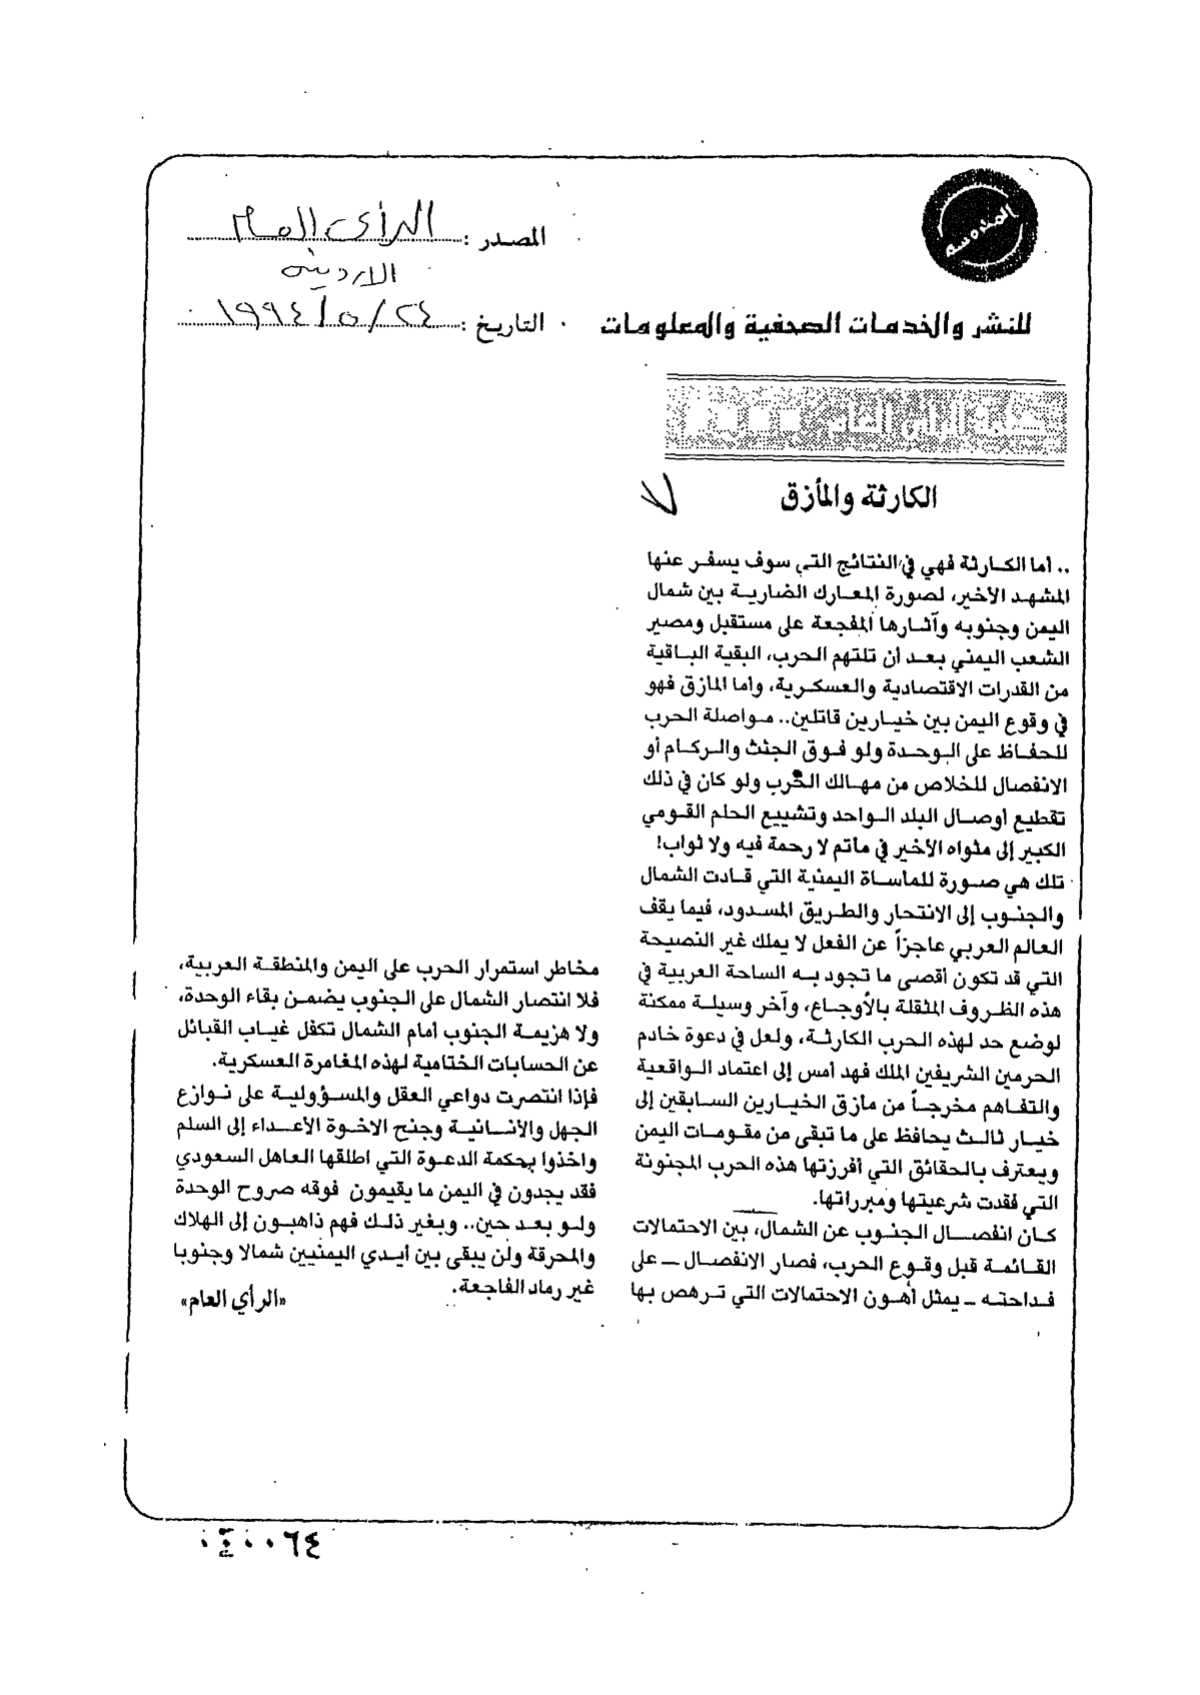 المصدر : الرأي العام
الاردنية
التاريخ : ٢٤ / ٥ / ١٩٩٤
للنشر والخدمات الصحفية والمعلومات
كلمة الرأي العام
الكارثة والمأزق
.. أما الكارثة فهي في النتائج التي سوف يسفر عنها
المشهد الأخير، لصورة المعارك الضارية بين شمال
اليمن وجنوبه وآثارها المفجعة على مستقبل ومصير
الشعب اليمني بعد أن تلتهم الحرب، البقية الباقية
من القدرات الاقتصادية والعسكرية، وأما المأزق فهو
في وقوع اليمن بين خيارين قاتلين.. مواصلة الحرب
للحفاظ على الوحدة ولو فوق الجثث والركام أو
الانفصال للخلاص من مهالك الحرب ولو كان في ذلك
تقطيع أوصال البلد الواحد وتشييع الحلم القومي
الكبير إلى مثواه الأخير في ماتم لا رحمة فيه ولا ثواب!
تلك هي صورة للماساة اليمنية التي قادت الشمال
والجنوب إلى الانتحار والطريق المسدود، فيما يقف
العالم العربي عاجزاً عن الفعل لا يملك غير النصيحة
التي قد تكون أقصى ما تجود به الساحة العربية في
هذه الظروف المثقلة بالأوجاع، وآخر وسيلة ممكنة
لوضع حد لهذه الحرب الكارثة، ولعل في دعوة خادم
الحرمين الشريفين الملك فهد أمس إلى اعتماد الواقعية
والتفاهم مخرجاً من مازق الخيارين السابقين إلى
خيار ثالث يحافظ على ما تبقى من مقومات اليمن
ويعترف بالحقائق التي أفرزتها هذه الحرب المجنونة
التي فقدت شرعيتها ومبرراتها.
كان انفصال الجنوب عن الشمال، بين الاحتمالات
القائمة قبل وقوع الحرب، فصار الانفصال ــ على
فداحته ــ يمثل أهون الاحتمالات التي ترهص بها
مخاطر استمرار الحرب على اليمن والمنطقة العربية،
فلا انتصار الشمال على الجنوب يضمن بقاء الوحدة،
ولا هزيمة الجنوب أمام الشمال تكفل غياب القبائل
عن الحسابات الختامية لهذه المغامرة العسكرية.
فإذا انتصرت دواعي العقل والمسؤولية على نوازع
الجهل والأنانية وجنح الاخوة الأعداء إلى السلم
واخذوا بحكمة الدعوة التي اطلقها العاهل السعودي
فقد يجدون في اليمن ما يقيمون فوقه صروح الوحدة
ولو بعد حين.. وبغير ذلك فهم ذاهبون إلى الهلاك
والمحرقة ولن يبقى بين أيدي اليمنيين شمالا وجنوبا
غير رماد الفاجعة.
«الرأي العام»